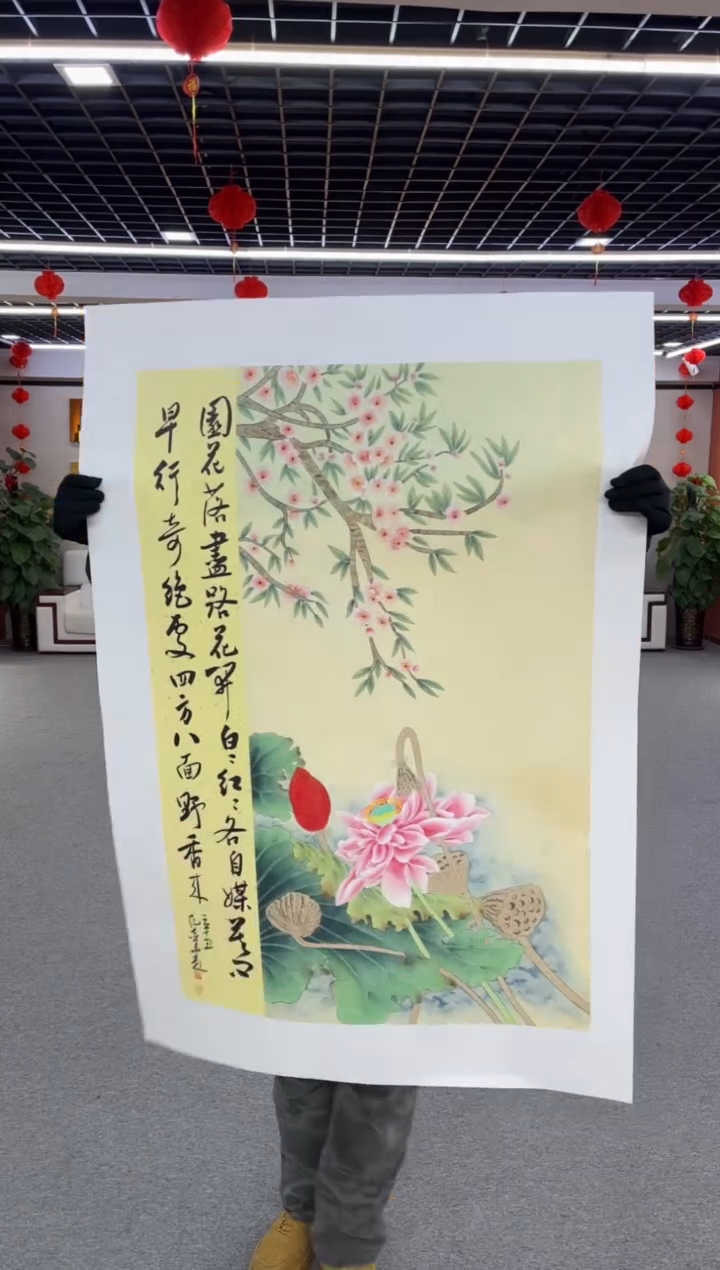 園花落盡路花開白〻紅〻各自媒莫問
早行奇絕處四方八面野香來
辛丑